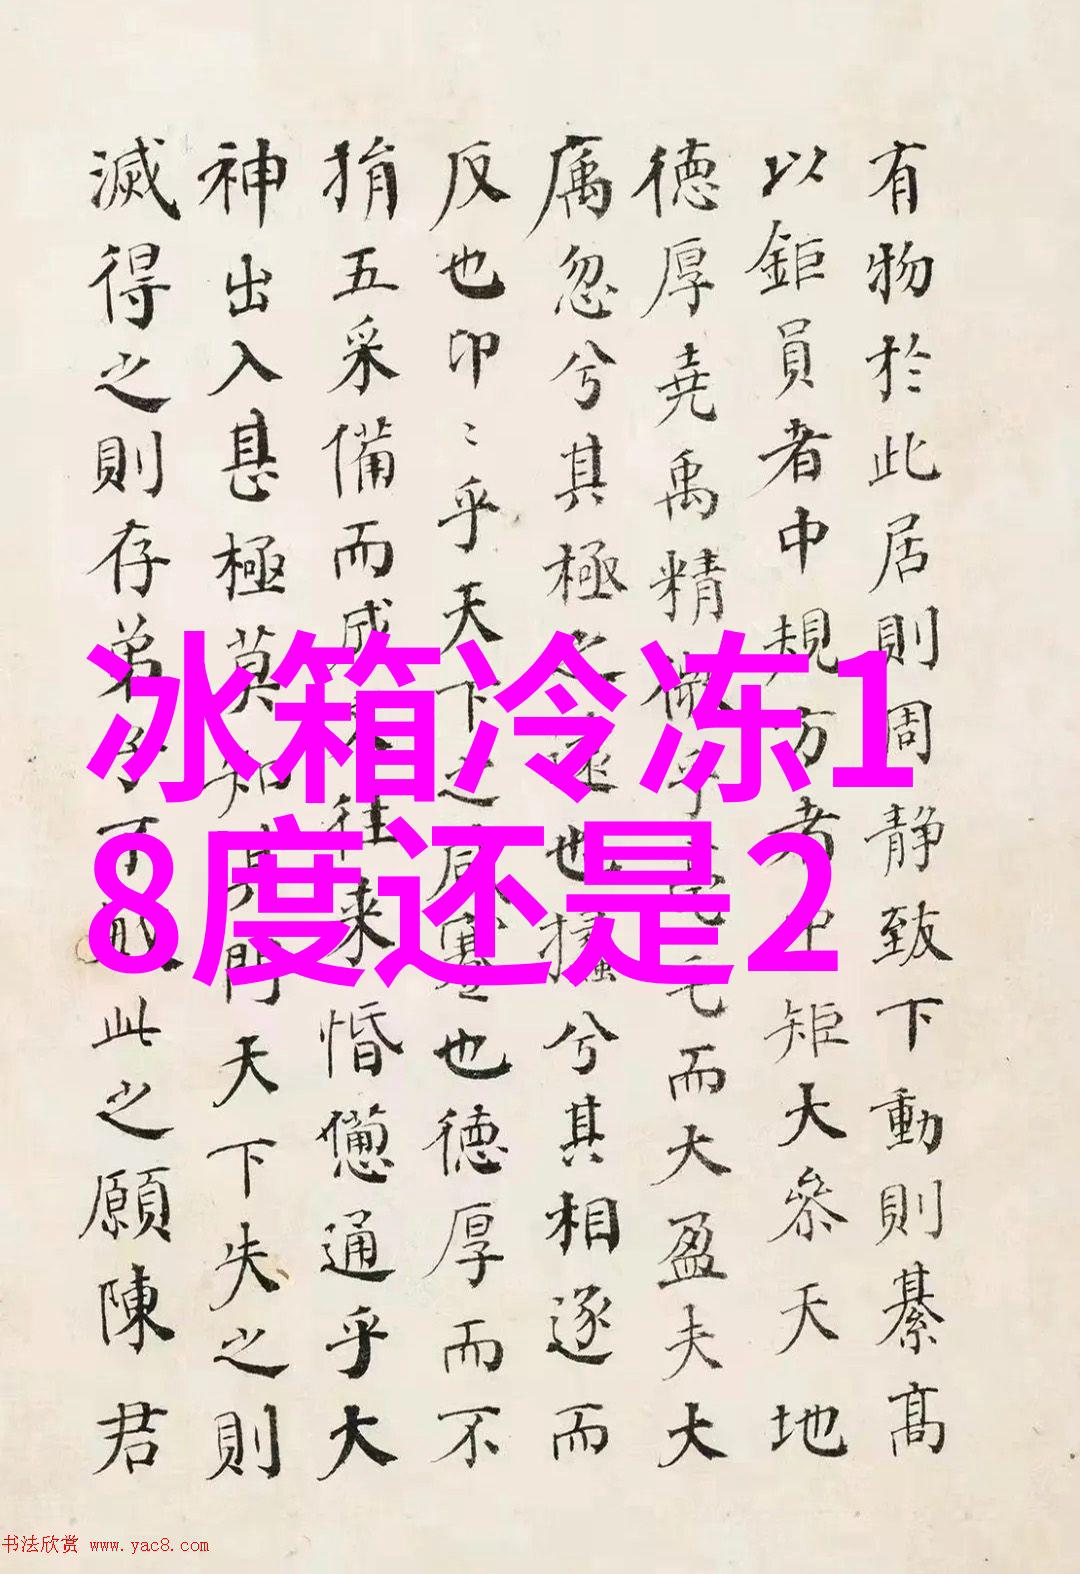 有物於此居則周静致下動則綦高
以鉅員者中規方者中矩大参天地
德厚堯禹精微乎毫毛而大盈夫大
厲忽兮其極之遠也攭兮其相逐而
反也卬〻乎天下之咸蹇也德厚而不
捐五采備而成文往来惛憊通乎大
神出入甚極莫知其門天下失之則
滅得之則存弟子不敏此之願陳君
冰箱冷冻1
8度还是2
书法欣赏 www.yac8.com